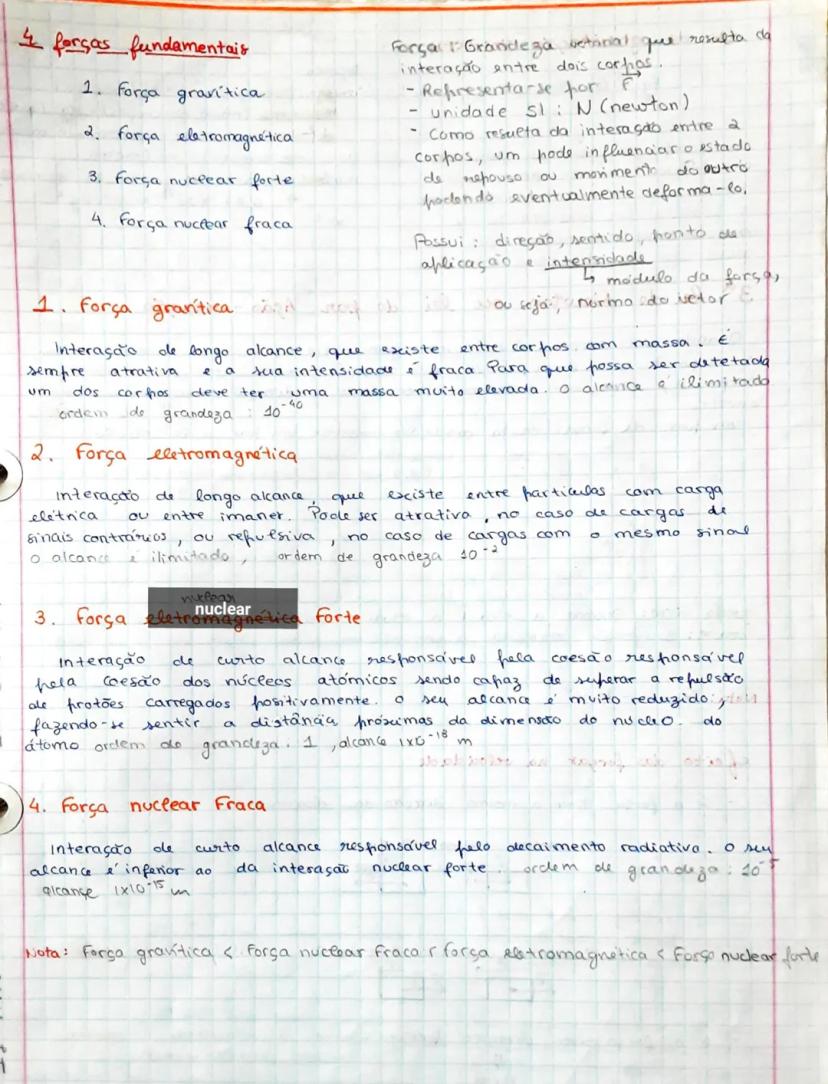 4 forças fundamentais
1. Força gravítica
2. Força eletromagnética
3. Força nuclear forte
4. Força nuclear fraca
Força : Grandeza vetorial que resulta da
interação entre dois corpos.
- Representa-se por F→
- unidade SI : N (newton)
- Como resulta da interação entre 2
corpos, um pode influenciar o estado
de repouso ou movimento do outro
podendo eventualmente deforma-lo.
Possui : direção, sentido, ponto de
aplicação e intensidade
↳ módulo da força,
ou seja, norma do vetor
1. Força gravítica
Interação de longo alcance, que existe entre corpos com massa. É
sempre atrativa e a sua intensidade é fraca. Para que possa ser detetada
um dos corpos deve ter uma massa muito elevada. O alcance é ilimitado
ordem de grandeza : 10⁻⁴⁰
2. Força eletromagnética
Interação de longo alcance, que existe entre partículas com carga
elétrica ou entre imanes. Pode ser atrativa, no caso de cargas de
sinais contrários, ou repulsiva, no caso de cargas com o mesmo sinal
O alcance é ilimitado, ordem de grandeza 10⁻²
nuclear
3. Força eletromagnética Forte
nuclear
Interação de curto alcance responsável pela coesão responsável
pela coesão dos núcleos atómicos sendo capaz de superar a repulsão
de protões carregados positivamente. O seu alcance é muito reduzido,
fazendo-se sentir a distância próximas da dimensão do nucleo do
átomo ordem de grandeza. 1 , alcance 1x10⁻¹⁸ m
4. Força nuclear Fraca
Interação de curto alcance responsável pelo decaimento radiativo. O seu
alcance é inferior ao da interação nuclear forte. ordem de grandeza : 10⁻⁵
alcance 1x10⁻¹⁵ m
Nota : Força gravítica < Força nuclear Fraca < força eletromagnética < Força nuclear forte